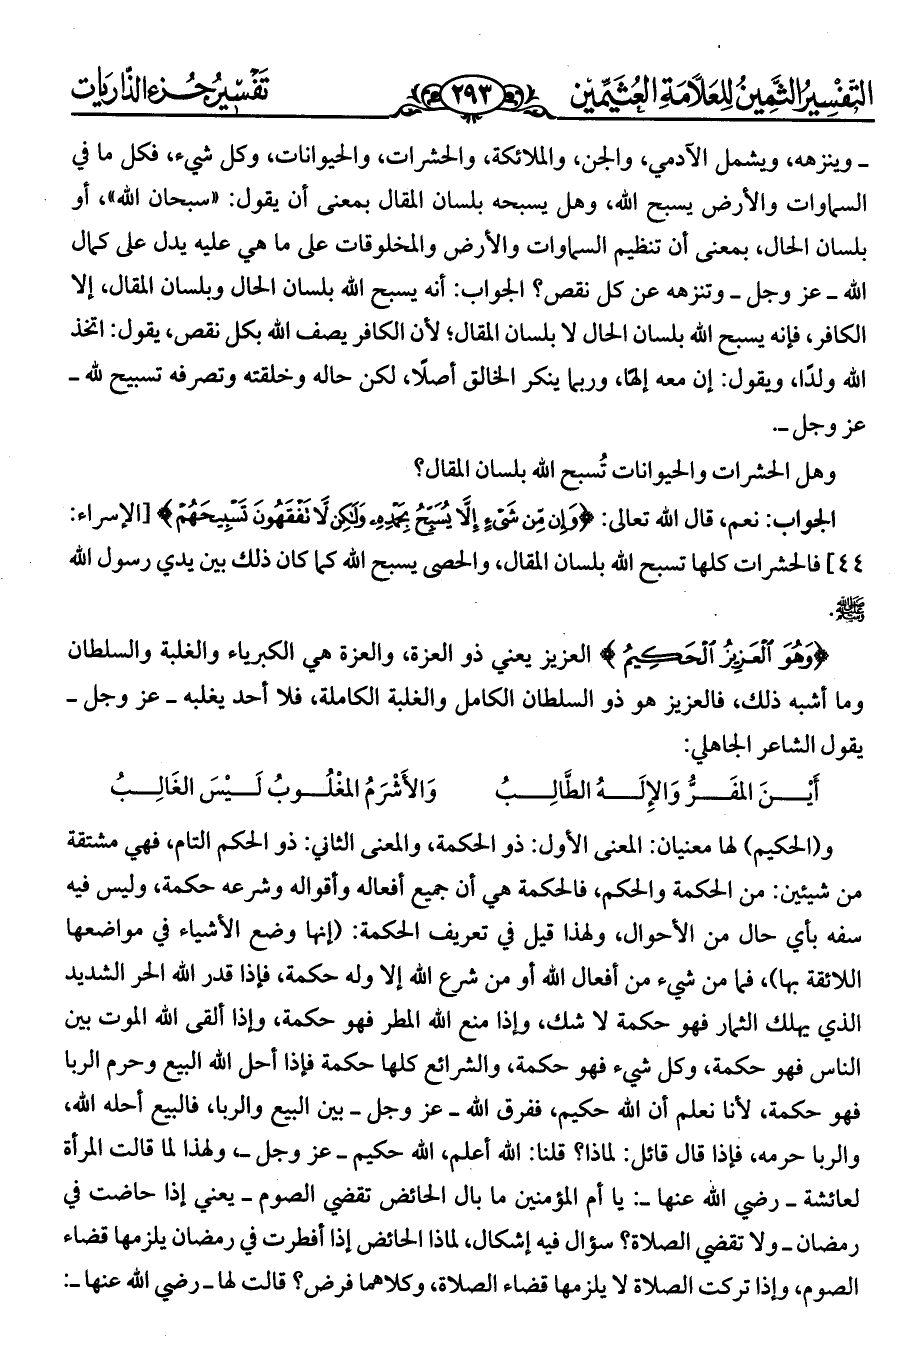 التفسير الثمين للعلامة العثيمين ٢٩٣ تفسير جزء الذاريات
ـ وينزهه، ويشمل الآدمي، والجن، والملائكة، والحشرات، والحيوانات، وكل شيء، فكل ما في
السماوات والأرض يسبح الله، وهل يسبحه بلسان المقال بمعنى أن يقول: «سبحان الله»، أو
بلسان الحال، بمعنى أن تنظيم السماوات والأرض والمخلوقات على ما هي عليه يدل على كمال
الله ـ عز وجل ـ وتنزهه عن كل نقص؟ الجواب: أنه يسبح الله بلسان الحال وبلسان المقال، إلا
الكافر، فإنه يسبح الله بلسان الحال لا بلسان المقال؛ لأن الكافر يصف الله بكل نقص، يقول: اتخذ
الله ولدًا، ويقول: إن معه إلهًا، وربما ينكر الخالق أصلًا، لكن حاله وخلقته وتصرفه تسبيح لله ـ
عز وجل ـ.
وهل الحشرات والحيوانات تُسبح الله بلسان المقال؟
الجواب: نعم، قال الله تعالى: ﴿وَإِن مِّن شَىْءٍ إِلَّا يُسَبِّحُ بِحَمْدِهِۦ وَلَٰكِن لَّا تَفْقَهُونَ تَسْبِيحَهُمْ﴾ [الإسراء:
٤٤] فالحشرات كلها تسبح الله بلسان المقال، والحصى يسبح الله كما كان ذلك بين يدي رسول الله
ﷺ.
﴿وَهُوَ ٱلْعَزِيزُ ٱلْحَكِيمُ﴾ العزيز يعني ذو العزة، والعزة هي الكبرياء والغلبة والسلطان
وما أشبه ذلك، فالعزيز هو ذو السلطان الكامل والغلبة الكاملة، فلا أحد يغلبه ـ عز وجل ـ
يقول الشاعر الجاهلي:
أَيْـنَ المَفَـرُّ وَالإِلَـهُ الطَّالِـبُ وَالأَشْرَمُ المَغْلُـوبُ لَـيْسَ الغَالِـبُ
و(الحكيم) لها معنيان: المعنى الأول: ذو الحكمة، والمعنى الثاني: ذو الحكم التام، فهي مشتقة
من شيئين: من الحكمة والحكم، فالحكمة هي أن جميع أفعاله وأقواله وشرعه حكمة، وليس فيه
سفه بأي حال من الأحوال، ولهذا قيل في تعريف الحكمة: (إنها وضع الأشياء في مواضعها
اللائقة بها)، فما من شيء من أفعال الله أو من شرع الله إلا وله حكمة، فإذا قدر الله الحر الشديد
الذي يهلك الثمار فهو حكمة لا شك، وإذا منع الله المطر فهو حكمة، وإذا ألقى الله الموت بين
الناس فهو حكمة، وكل شيء فهو حكمة، والشرائع كلها حكمة فإذا أحل الله البيع وحرم الربا
فهو حكمة، لأنا نعلم أن الله حكيم، ففرق الله ـ عز وجل ـ بين البيع والربا، فالبيع أحله الله،
والربا حرمه، فإذا قال قائل: لماذا؟ قلنا: الله أعلم، الله حكيم ـ عز وجل ـ، ولهذا لما قالت المرأة
لعائشة ـ رضي الله عنها ـ: يا أم المؤمنين ما بال الحائض تقضي الصوم ـ يعني إذا حاضت في
رمضان ـ ولا تقضي الصلاة؟ سؤال فيه إشكال، لماذا الحائض إذا أفطرت في رمضان يلزمها قضاء
الصوم، وإذا تركت الصلاة لا يلزمها قضاء الصلاة، وكلاهما فرض؟ قالت لها ـ رضي الله عنها ـ: